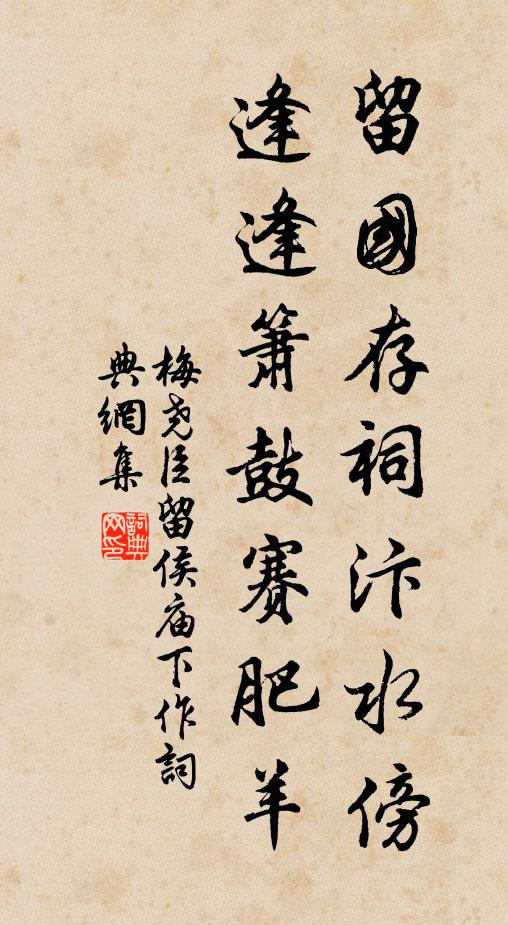 留國存祠汴水傍
逢逢簫鼓賽肥羊
梅尧臣留侯庙下作詞
典網集
詞典
网印